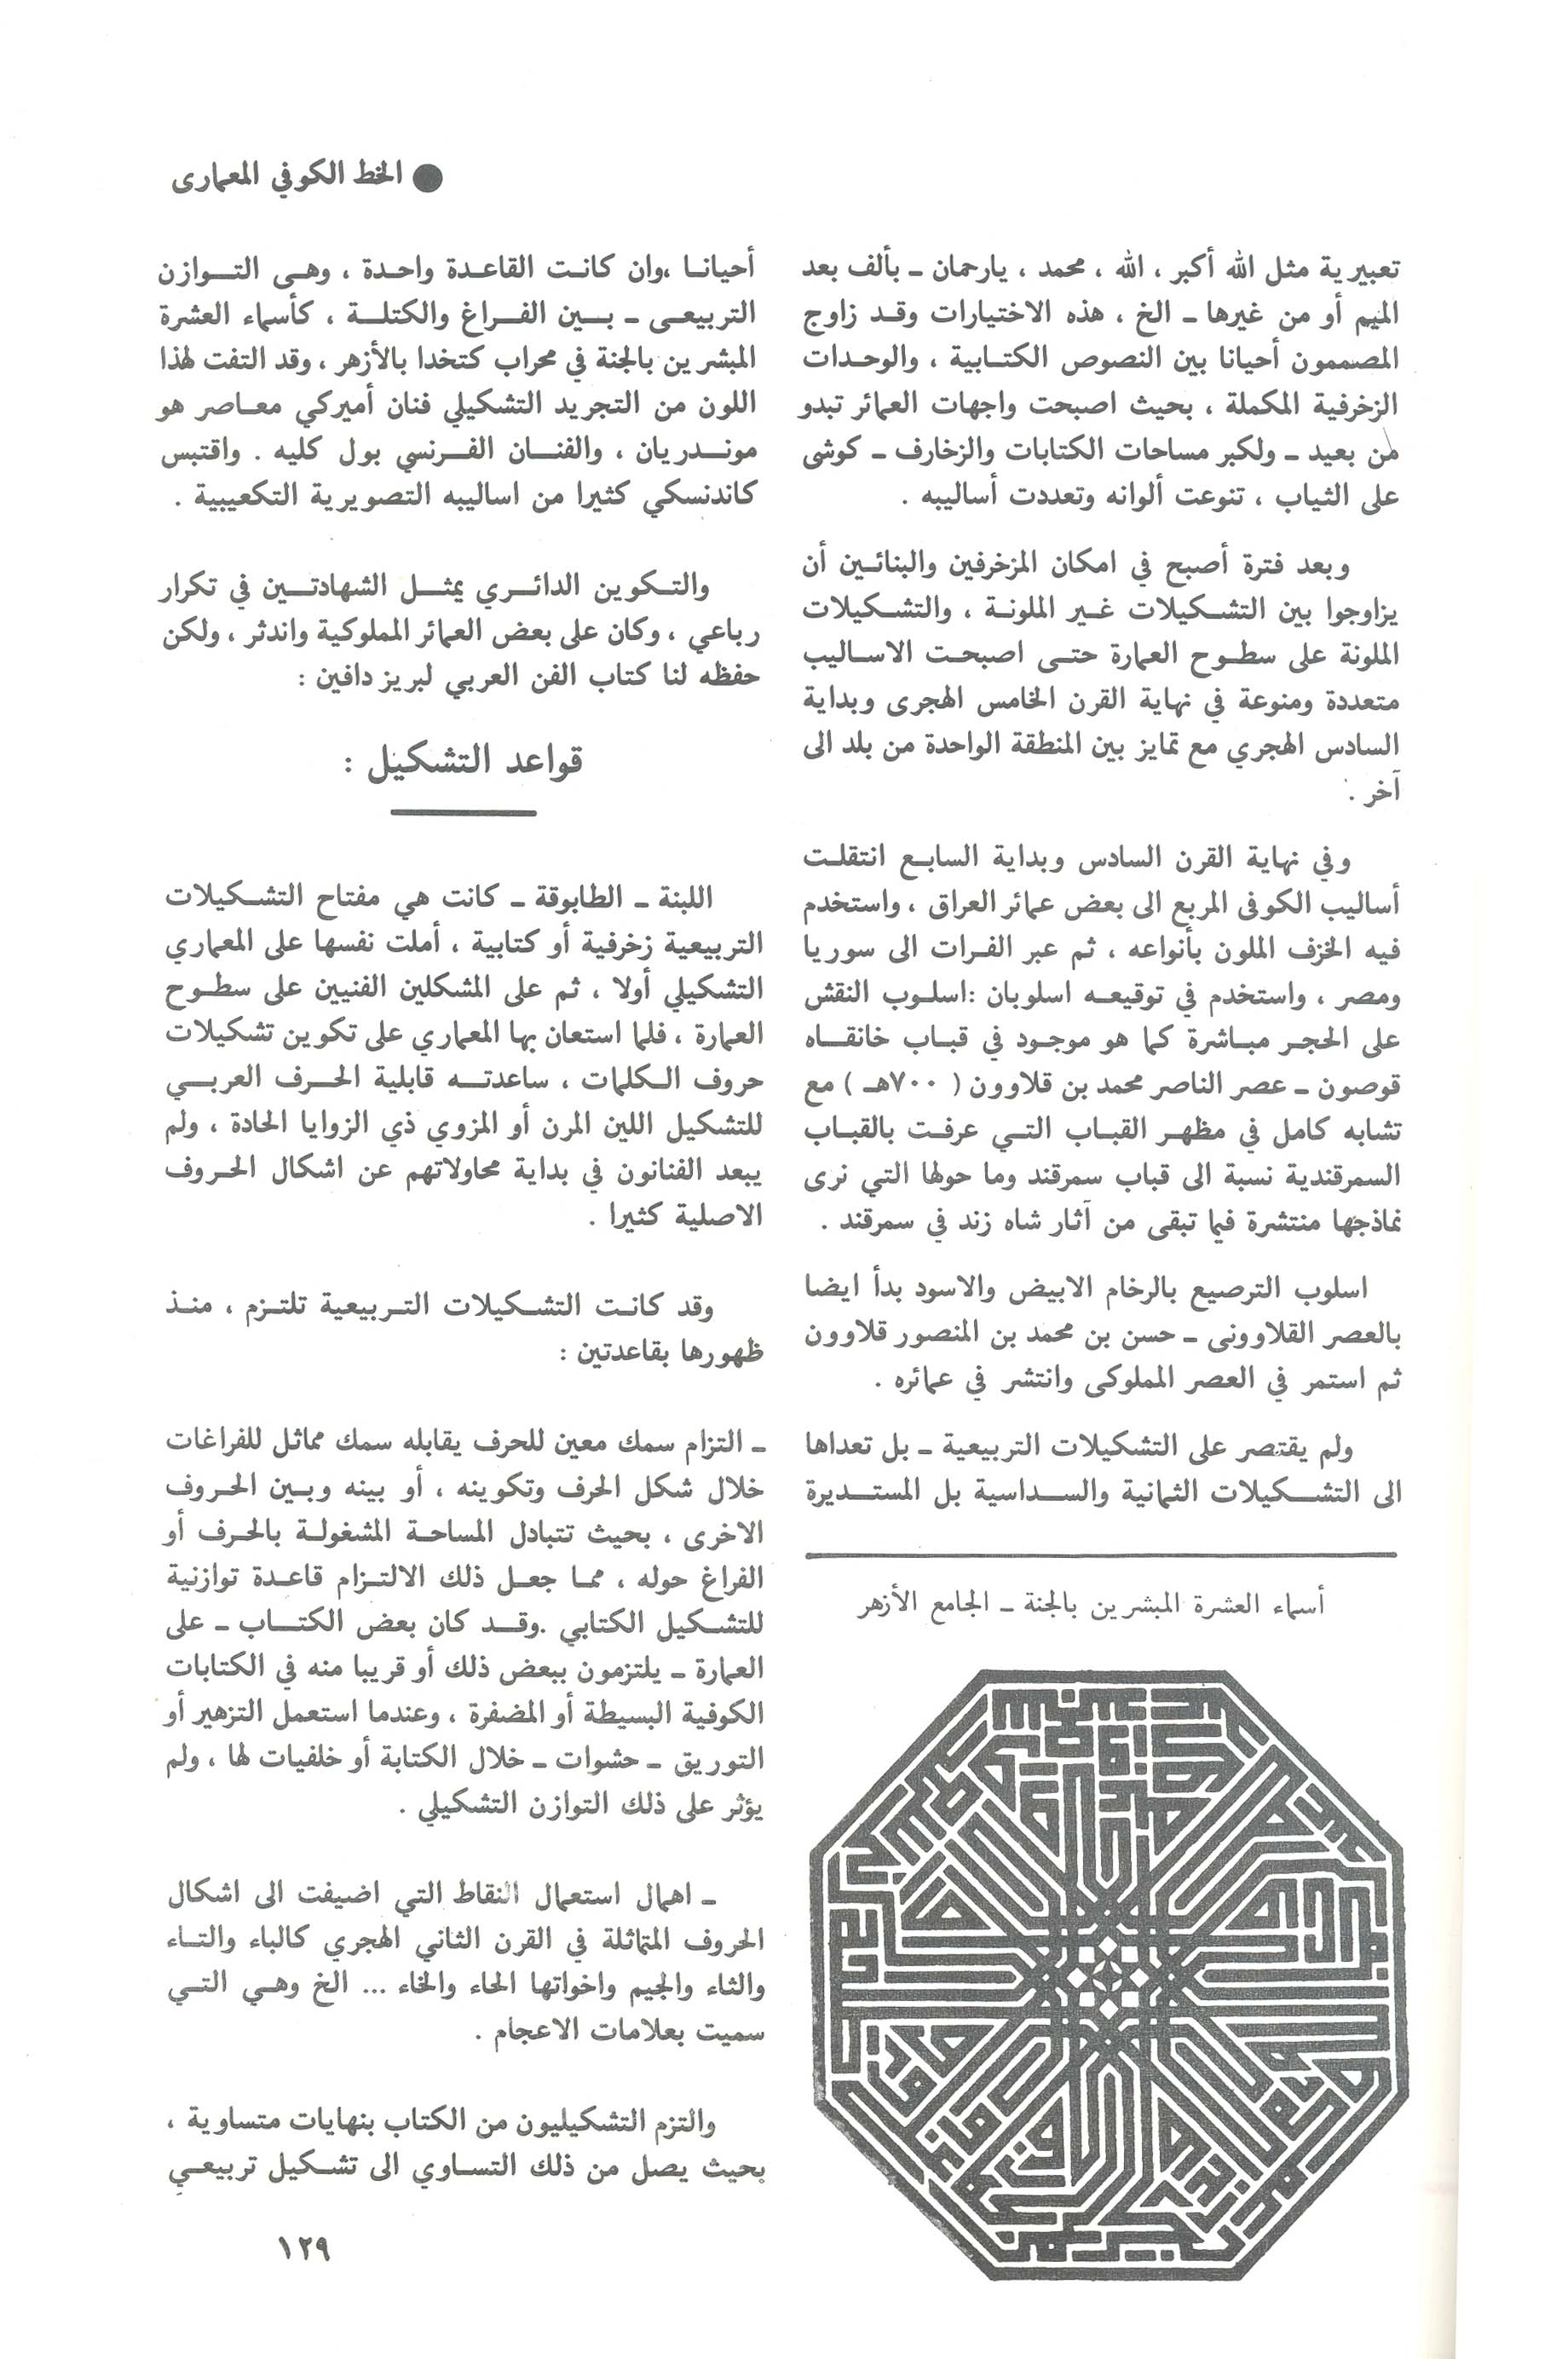 ● الخط الكوفي المعمارى
تعبيرية مثل الله أكبر ، الله ، محمد ، يارحمان ـ بألف بعد
الميم أو من غيرها ـ الخ ، هذه الاختيارات وقد زاوج
المصممون أحيانا بين النصوص الكتابية ، والوحدات
الزخرفية المكملة ، بحيث اصبحت واجهات العمائر تبدو
من بعيد ـ ولكبر مساحات الكتابات والزخارف ـ كوشى
على الثياب ، تنوعت ألوانه وتعددت أساليبه .
وبعد فترة أصبح في امكان المزخرفين والبنائين أن
يزاوجوا بين التشكيلات غير الملونة ، والتشكيلات
الملونة على سطوح العمارة حتى اصبحت الاساليب
متعددة ومنوعة في نهاية القرن الخامس الهجرى وبداية
السادس الهجري مع تمايز بين المنطقة الواحدة من بلد الى
آخر .
وفي نهاية القرن السادس وبداية السابع انتقلت
أساليب الكوفى المربع الى بعض عمائر العراق ، واستخدم
فيه الخزف الملون بأنواعه ، ثم عبر الفرات الى سوريا
ومصر ، واستخدم في توقيعه اسلوبان :اسلوب النقش
على الحجر مباشرة كما هو موجود في قباب خانقاه
قوصون ـ عصر الناصر محمد بن قلاوون ( ٧٠٠هـ ) مع
تشابه كامل في مظهر القباب التي عرفت بالقباب
السمرقندية نسبة الى قباب سمرقند وما حولها التي نرى
نماذجها منتشرة فيما تبقى من آثار شاه زند في سمرقند .
اسلوب الترصيع بالرخام الابيض والاسود بدأ ايضا
بالعصر القلاوونى ـ حسن بن محمد بن المنصور قلاوون
ثم استمر في العصر المملوكى وانتشر في عمائره .
ولم يقتصر على التشكيلات التربيعية ـ بل تعداها
الى التشكيلات الثمانية والسداسية بل المستديرة
أسماء العشرة المبشرين بالجنة ـ الجامع الأزهر
أحيانا ،وان كانت القاعدة واحدة ، وهى التوازن
التربيعى ـ بين الفراغ والكتلة ، كأسماء العشرة
المبشرين بالجنة في محراب كتخدا بالأزهر ، وقد التفت لهذا
اللون من التجريد التشكيلي فنان أميركي معاصر هو
موندريان ، والفنان الفرنسي بول كليه . واقتبس
كاندنسكي كثيرا من اساليبه التصويرية التكعيبية .
والتكوين الدائري يمثل الشهادتين في تكرار
رباعي ، وكان على بعض العمائر المملوكية واندثر ، ولكن
حفظه لنا كتاب الفن العربي لبريز دافين :
قواعد التشكيل :
اللبنة ـ الطابوقة ـ كانت هي مفتاح التشكيلات
التربيعية زخرفية أو كتابية ، أملت نفسها على المعماري
التشكيلي أولا ، ثم على المشكلين الفنيين على سطوح
العمارة ، فلما استعان بها المعماري على تكوين تشكيلات
حروف الكلمات ، ساعدته قابلية الحرف العربي
للتشكيل اللين المرن أو المزوي ذي الزوايا الحادة ، ولم
يبعد الفنانون في بداية محاولاتهم عن اشكال الحروف
الاصلية كثيرا .
وقد كانت التشكيلات التربيعية تلتزم ، منذ
ظهورها بقاعدتين :
ـ التزام سمك معين للحرف يقابله سمك مماثل للفراغات
خلال شكل الحرف وتكوينه ، أو بينه وبين الحروف
الاخرى ، بحيث تتبادل المساحة المشغولة بالحرف أو
الفراغ حوله ، مما جعل ذلك الالتزام قاعدة توازنية
للتشكيل الكتابي .وقد كان بعض الكتاب ـ على
العمارة ـ يلتزمون ببعض ذلك أو قريبا منه في الكتابات
الكوفية البسيطة أو المضفرة ، وعندما استعمل التزهير أو
التوريق ـ حشوات ـ خلال الكتابة أو خلفيات لها ، ولم
يؤثر على ذلك التوازن التشكيلي .
ـ اهمال استعمال النقاط التي اضيفت الى اشكال
الحروف المتماثلة في القرن الثاني الهجري كالباء والتاء
والثاء والجيم واخواتها الحاء والخاء ... الخ وهي التي
سميت بعلامات الاعجام .
والتزم التشكيليون من الكتاب بنهايات متساوية ،
بحيث يصل من ذلك التساوي الى تشكيل تربيعي
١٢٩